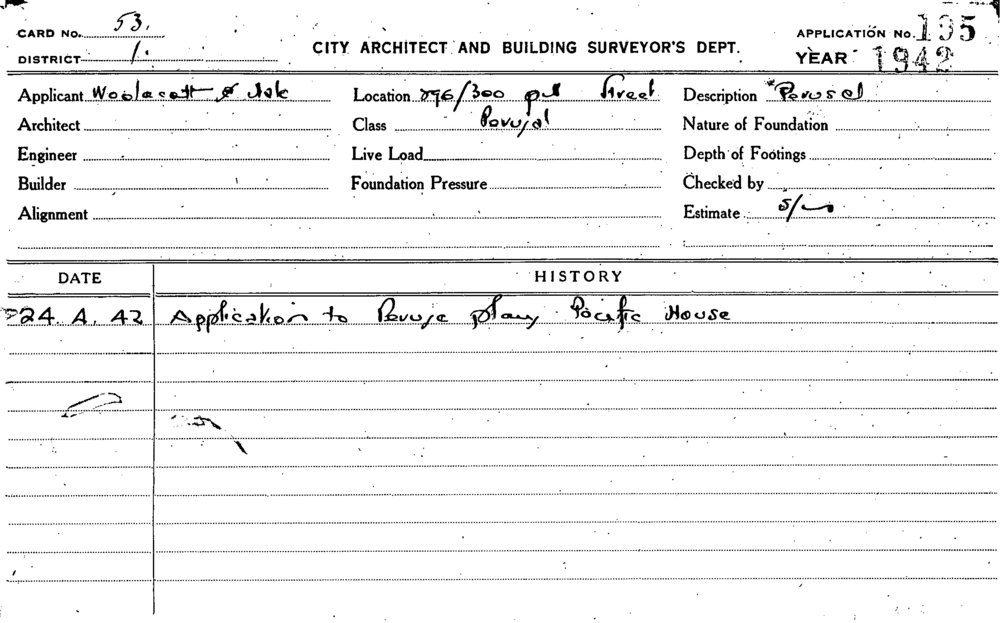 CARD No. 53.
APPLICATION No. 195
DISTRICT 1.
CITY ARCHITECT AND BUILDING SURVEYOR'S DEPT.
YEAR 1942
Applicant Woolacott & Location 296/300 pitt Street Description Perusal
Architect Class Perusal Nature of Foundation
Engineer Live Load Depth of Footings
Builder Foundation Pressure Checked by
Alignment Estimate 5/-
DATE HISTORY
24. 4. 42 Application to Peruse plans Pacific House